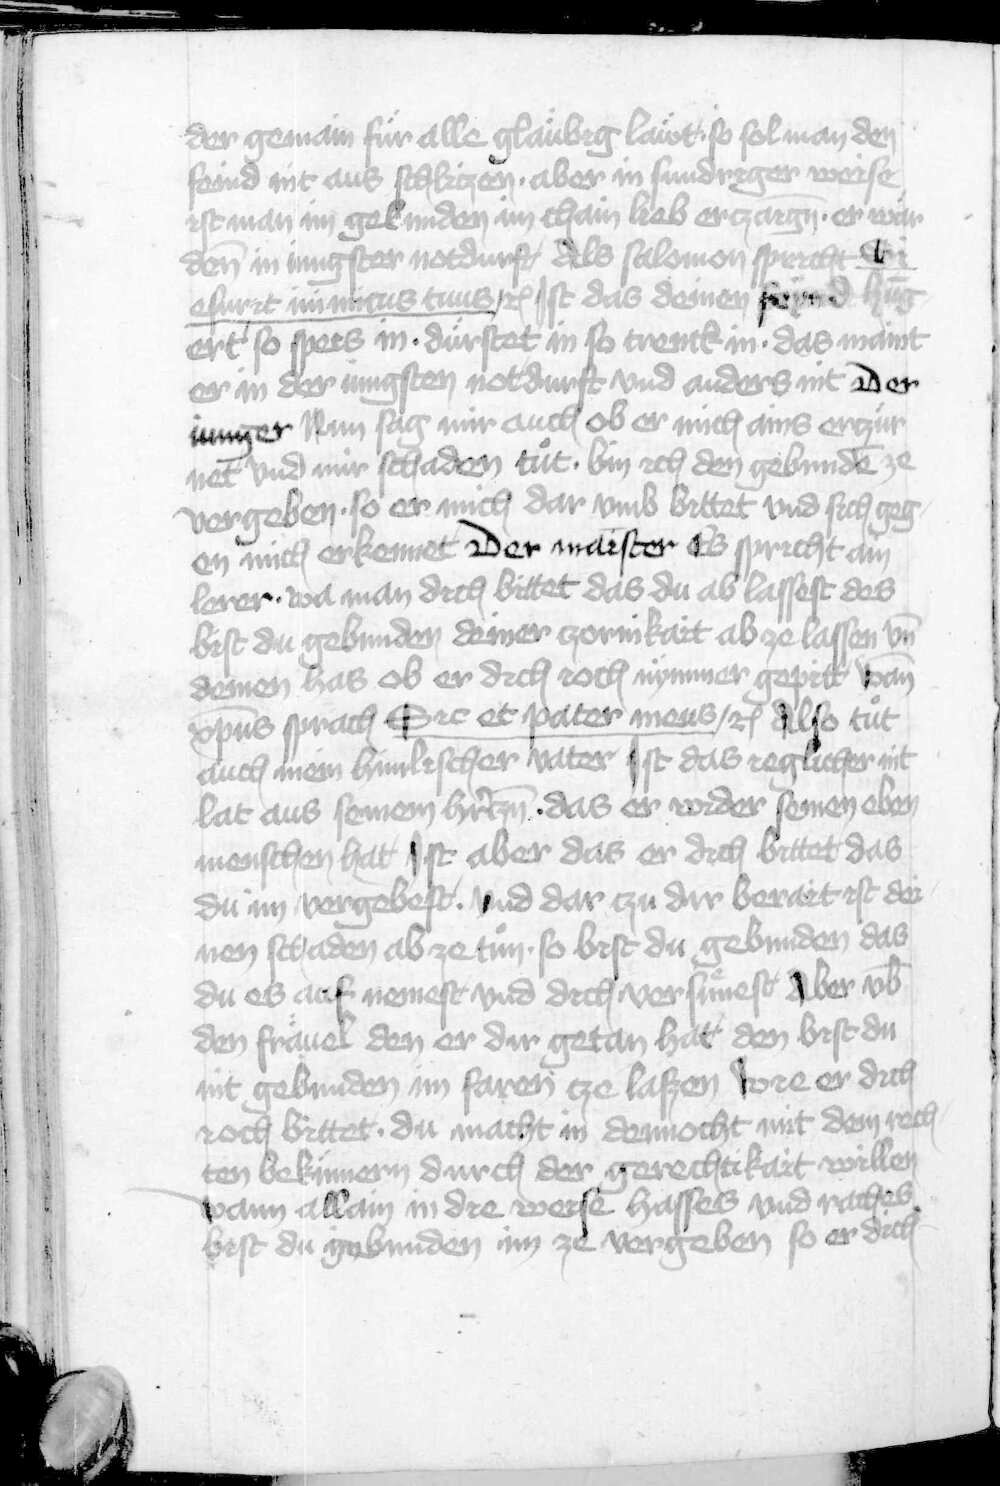 der gemain für alle gläubig läwt · so sol man den
feind nit aus schlitzen · aber in sundriger weise
ist man im gebunden im chain lieb ertzaigñ · er wär
deñ in iungster notdurft Als salomon spricht Si
esurit inimicus tuus / rc̃ Ist das deinen feind hung
ert so speis in · dürstet in so trenck in · das maint
er in der iungsten notdurft vnd anders nit Der
iunger Nun sag mir auch ob er mich ains ertzür
net vnd mir schaden tůt · bin ich den gebundē ze
vergeben · so er mich dar vmb bittet vnd sich geg
en mich erkennet Der maister Es spricht ain
lerer · wa man dich bittet das du ab lassest des
bist du gebunden deiner tzornikait ab ze lassen vn̄
deinen has ob er dich ioch nymmer gepitt wañ
xp̄us sprach Sic et pater meus / rc̃ Also tůt
auch mein himlischer vater Ist das ieglicher nit
lat aus seinem hertzñ · das er wider seinen eben
menschen hat Ist aber das er dich bittet das
du im vergebest · vnd dar tzu dir berait ist dei
nen schaden ab ze tůn · so bist du gebunden das
du es auf nemest vnd dich versünest Aber vb̄
den fräuel den er dir getan hat den bist du
nit gebunden im faren tze laszen wie er dich
ioch bittet · du macht in dennocht mit dem rech
ten bekümern durch der gerechtikait willen
wann allain in die weise hasses vnd raches
bist du gebunden im ze vergeben so er dich